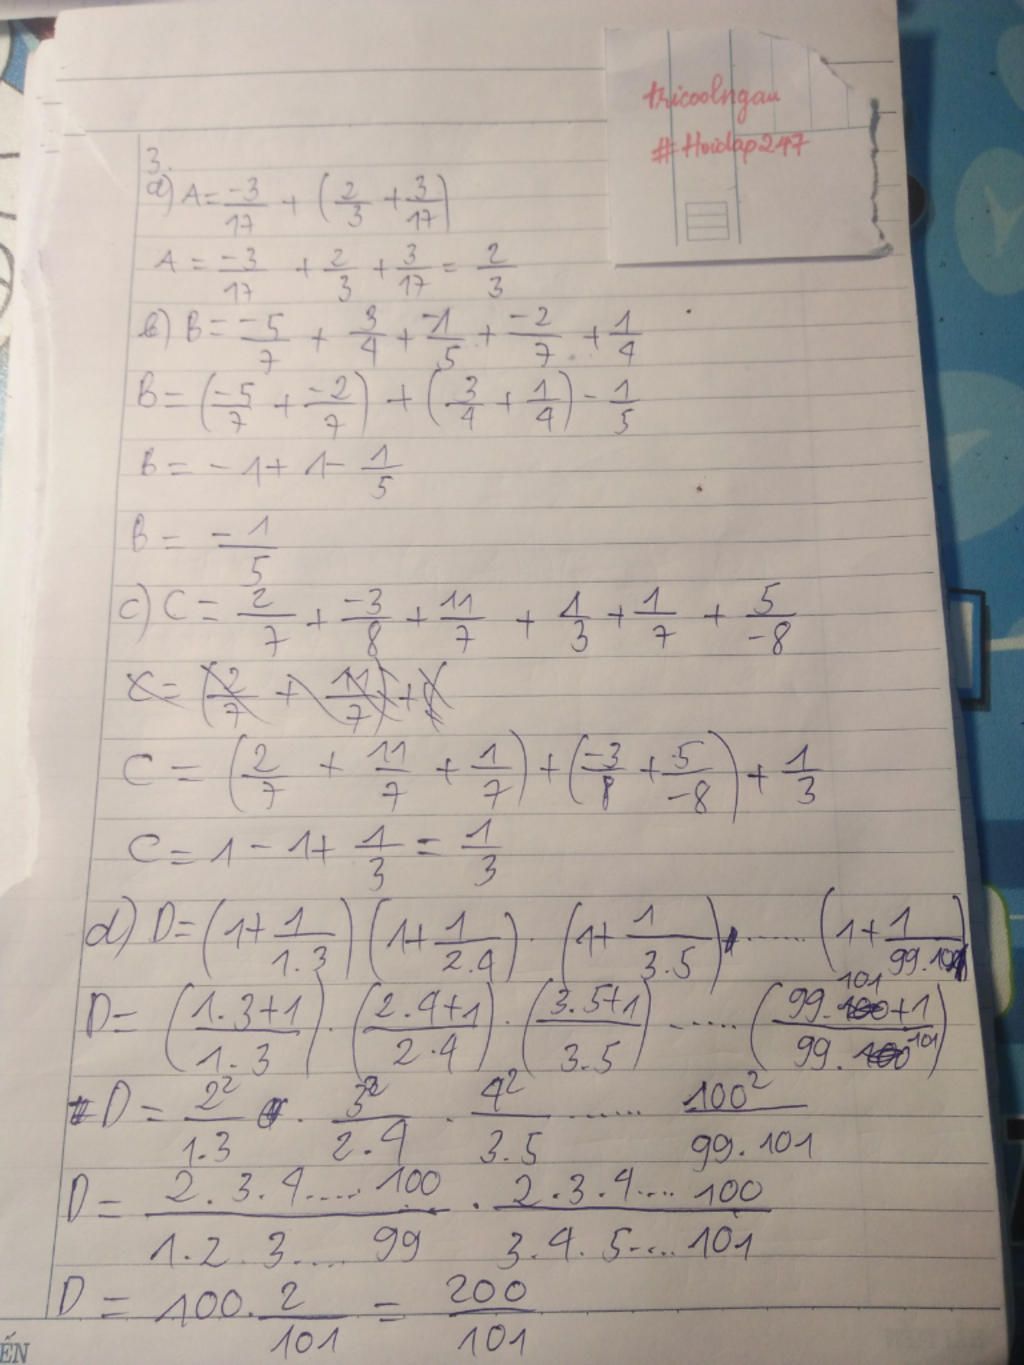 tricoolngau
#Hoidap247
3.
a) A = -3/17 + (2/3 + 3/17)
A = -3/17 + 2/3 + 3/17 = 2/3
b) B = -5/7 + 3/4 + -1/5 + -2/7 + 1/4
B = (-5/7 + -2/7) + (3/4 + 1/4) - 1/5
B = -1 + 1 - 1/5
B = -1/5
c) C = 2/7 + -3/8 + 11/7 + 1/3 + 1/7 + 5/-8
C = (2/7 + 11/7) + (
C = (2/7 + 11/7 + 1/7) + (-3/8 + 5/-8) + 1/3
C = 1 - 1 + 1/3 = 1/3
d) D = (1 + 1/1.3) (1 + 1/2.4) . (1 + 1/3.5) . ..... (1 + 1/99.101)
D = (1.3+1/1.3) . (2.4+1/2.4) . (3.5+1/3.5) ...... (99.101+1/99.101)
D = 2²/1.3 . 3²/2.4 . 4²/3.5 ...... 100²/99.101
D = 2.3.4.....100/1.2.3.....99 . 2.3.4....100/3.4.5....101
D = 100 . 2/101 = 200/101
ẾN